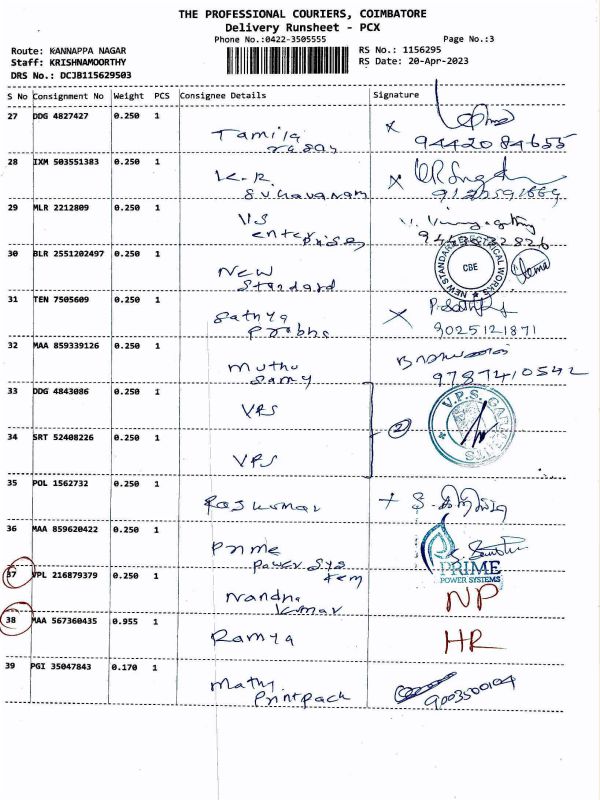 THE PROFESSIONAL COURIERS, COIMBATORE
Delivery Runsheet - PCX
Phone No.:0422-3505555
Page No.:3
Route: KANNAPPA NAGAR
RS No.: 1156295
Staff: KRISHNAMOORTHY
RS Date: 20-Apr-2023
DRS No.: DCJB115629503
S No Consignment No Weight PCS Consignee Details Signature
27 DDG 4827427 0.250 1
Tamila
9442084655
28 IXM 503551383 0.250 1
K.R.
29 MLR 2212809 0.250 1
VS
enterprises
30 BLR 2551202497 0.250 1
NEW STANDARD ELECTRICAL WORKS
CBE
New
Standard
31 TEN 7505609 0.250 1
Sathya
Prabhu
9025121871
32 MAA 859339126 0.250 1
Muthu
Samy
9787410542
33 DDG 4843086 0.250 1
VPS
V.P.S. GARMENTS
2
34 SRT 52408226 0.250 1
VPS
35 POL 1562732 0.250 1
Rajkumar
36 MAA 859620422 0.250 1
Prime
Power System
PRIME
POWER SYSTEMS
37 VPL 216879379 0.250 1
Nandha
Kumar
NP
38 MAA 567360435 0.955 1
Ramya
HR
39 PGI 35047843 0.170 1
Mathi
Printpack
9003500104